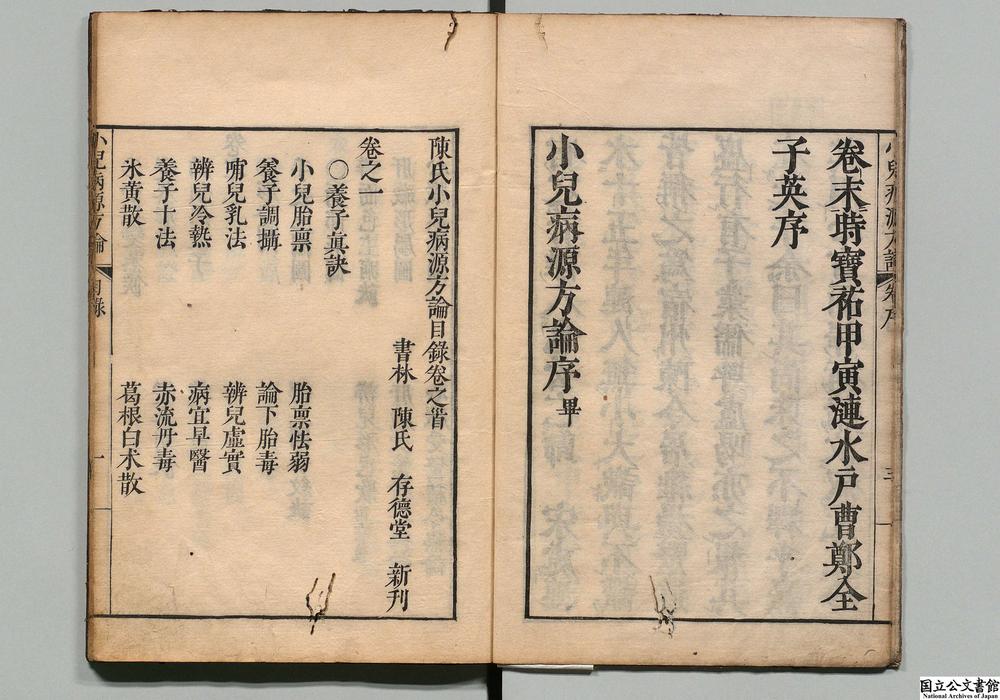 卷末時寶祐甲寅漣水戸曹鄭全
子英序
小兒病源方論序 畢
陳氏小兒病源方論目錄卷之首
書林 陳氏 存德堂 新刊
卷之一
○養子真訣
小兒胎禀 胎禀怯弱
養子調攝 論下胎毒
哺兒乳法 辨兒虛實
辨兒冷熱 病宜早醫
養子十法 赤流丹毒
氷黄散 葛根白术散
小兒病源方論 目錄 一
国立公文書館
National Archives of Japan